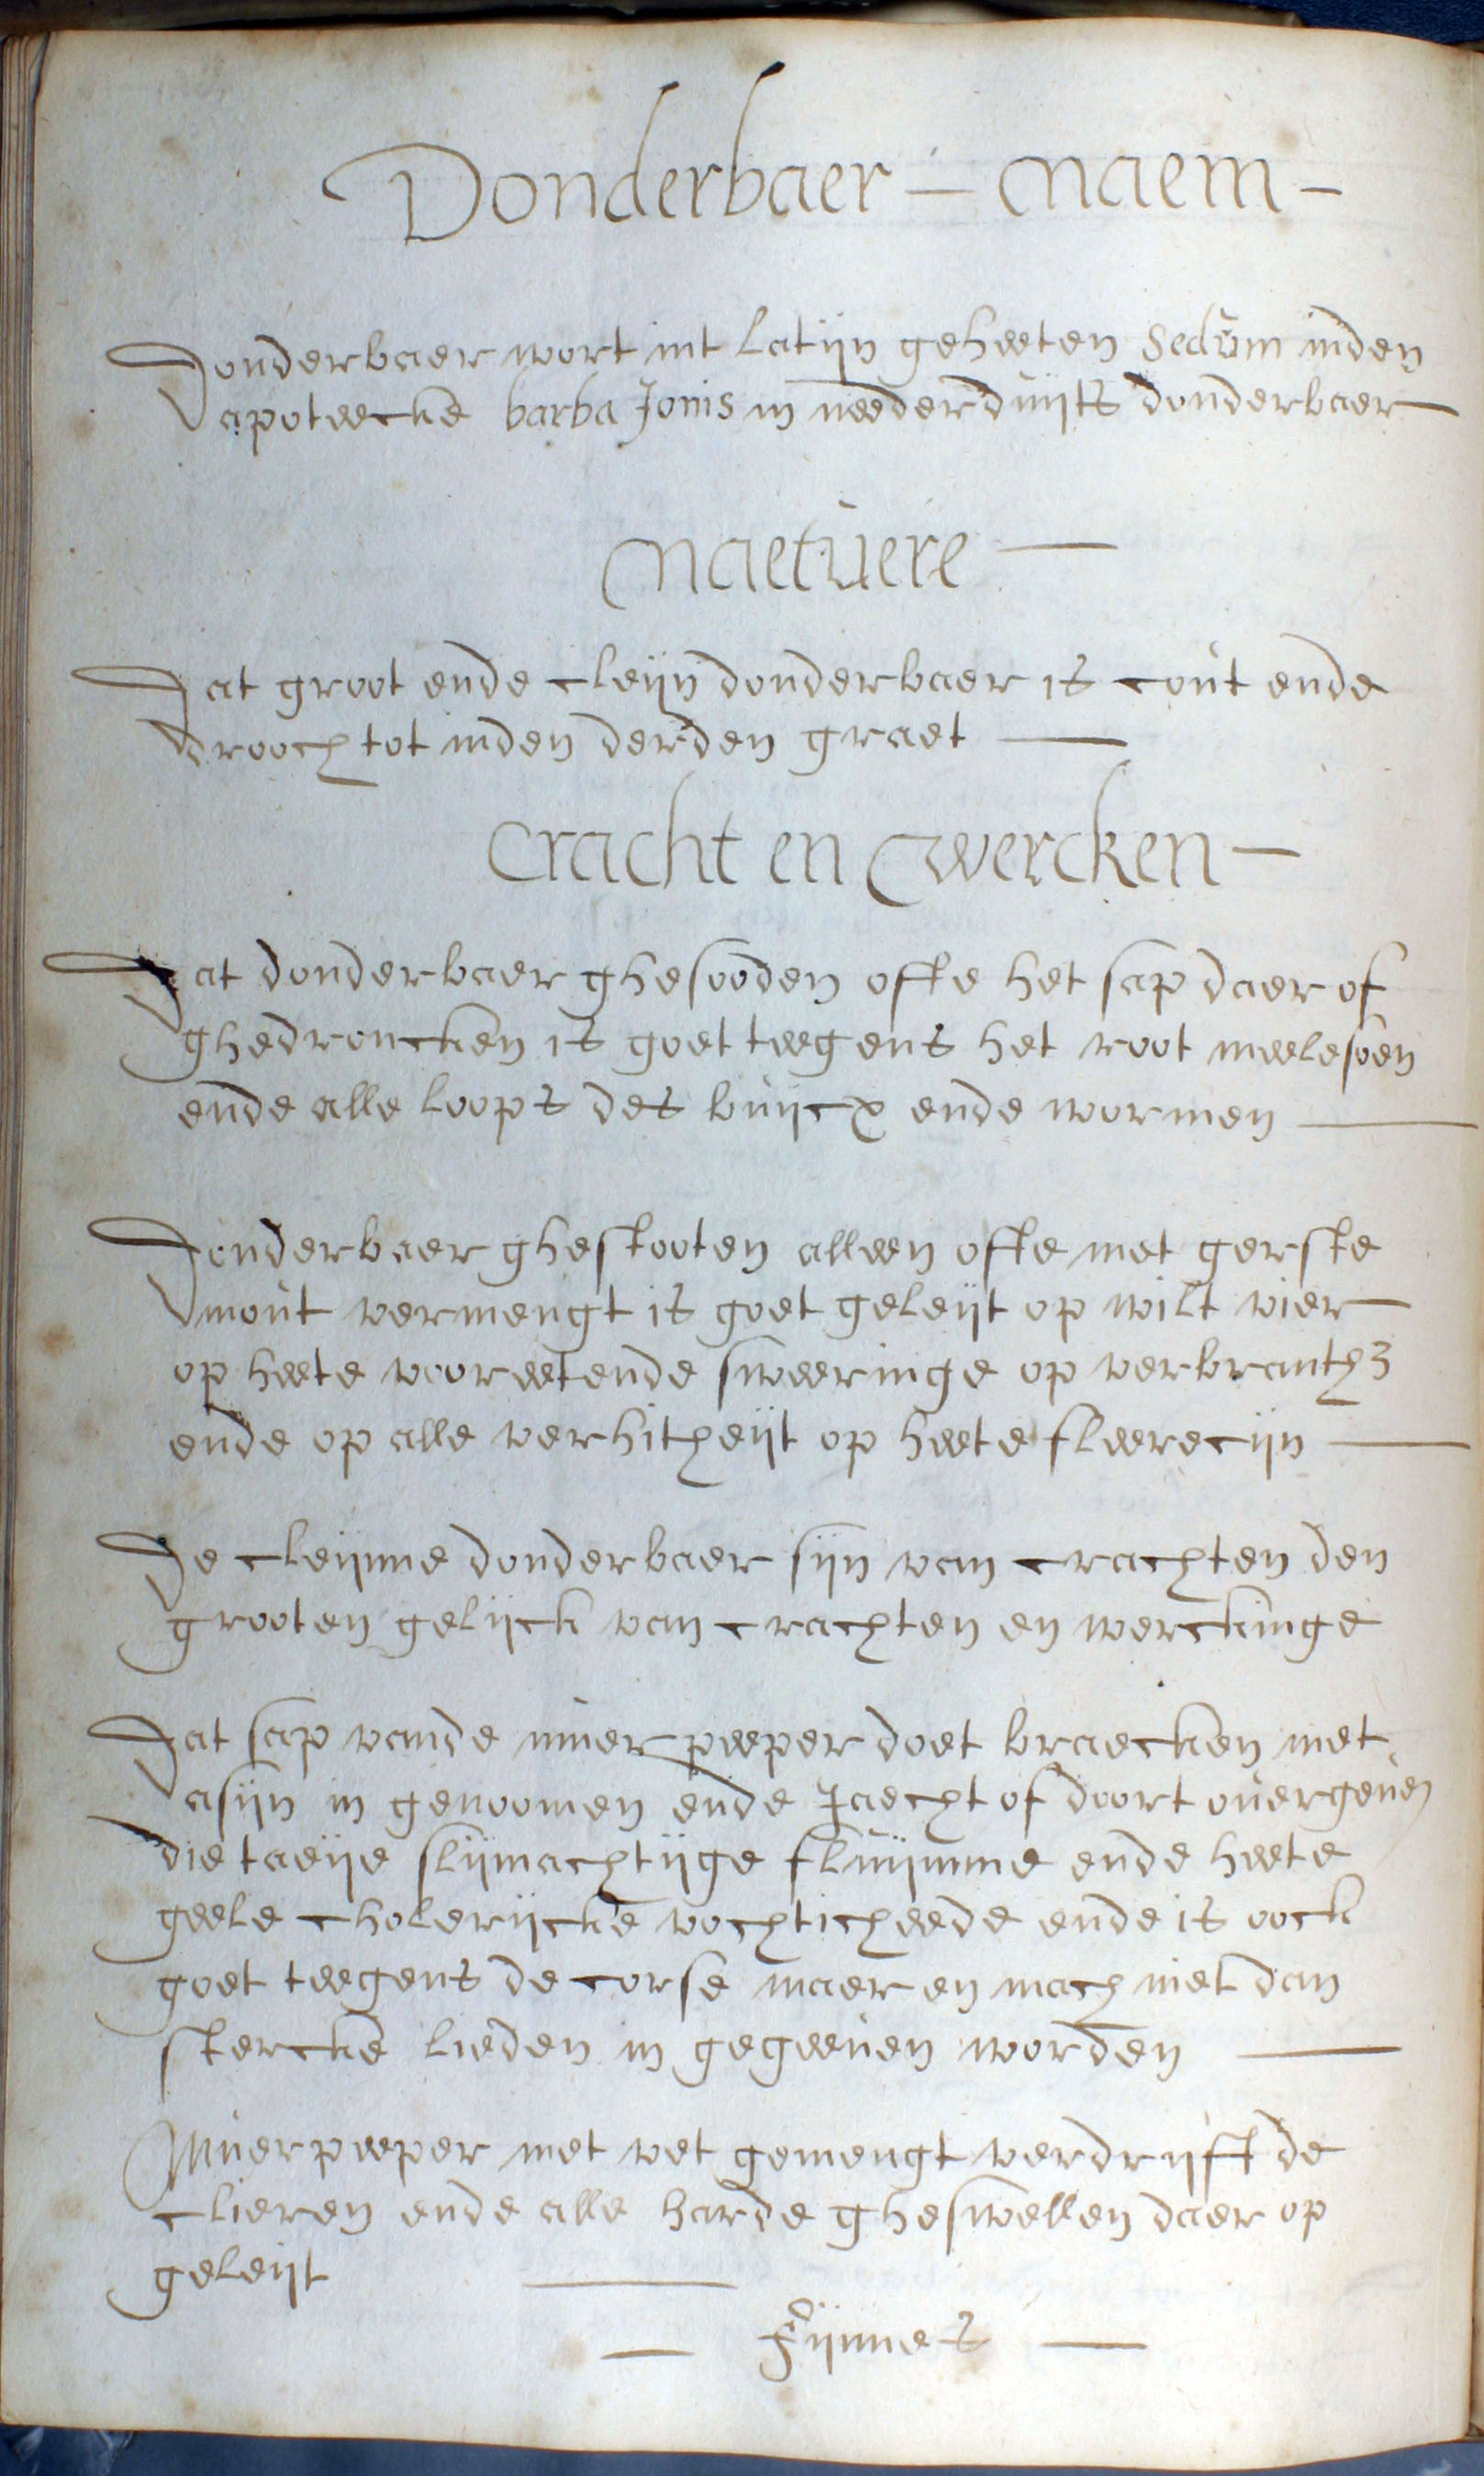 Donderbaer — Naem —
Donderbaer wort int Latijn geheeten Sedum inden
apoteecke barba Jovis in neederduijts donderbaer
Naetuere —
Dat groot ende cleijn donderbaer is cout ende
drooch tot inden derden graet —
Cracht en Wercken —
Dat donderbaer ghesooden ofte het sap daer of
ghedroncken is goet teegens het root meelesoen
ende alle loops des buijcx ende wormen —
Donderbaer ghestooten alleen ofte met gerste
mout vermengt is goet geleijt op wilt vier
op heete vooreetende sweeringe op verbranth
ende op alle verhitheijt op heete fleerecijn —
De cleijnne donderbaer sijn van crachten den
grooten gelijck van crachten en werckinge
Dat sap vande muer peeper doet braecken met
asijn in genoomen ende Jaecht of doort overgeven
die taeije slijmachtijge fluijmme ende heete
geele cholerijcke vochticheede ende is oock
goet teegens de corse maer en mach niet dan
stercke lieden in gegeeven worden —
Muerpeeper met vet gemengt verdrijft de
clieren ende alle harde gheswellen daer op
geleijt —
— Fijnnes —